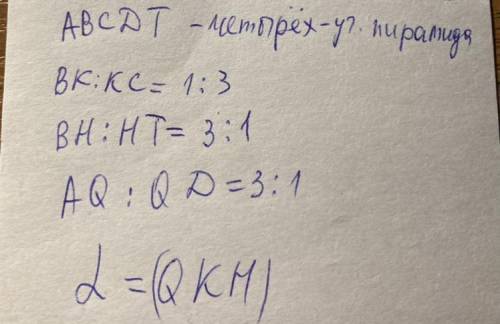 ABCDT - четырёх-уг. пирамида
BK:KC= 1:3
BH:HT= 3:1
AQ : QD=3:1
α =(QKH)